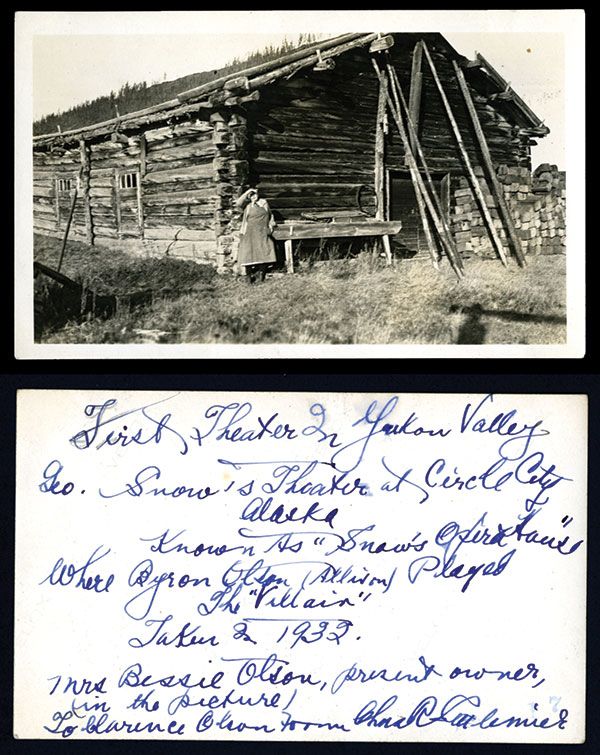 First Theater In Yukon Valley
Geo. Snow's Theater at Circle City
Alaska
Known As "Snow's Opera House"
Where Byron Olson (Allison) Played
The "Villain"
Taken In 1932.
Mrs Bessie Olson, present owner,
(in the picture)
To Clarence Olson from